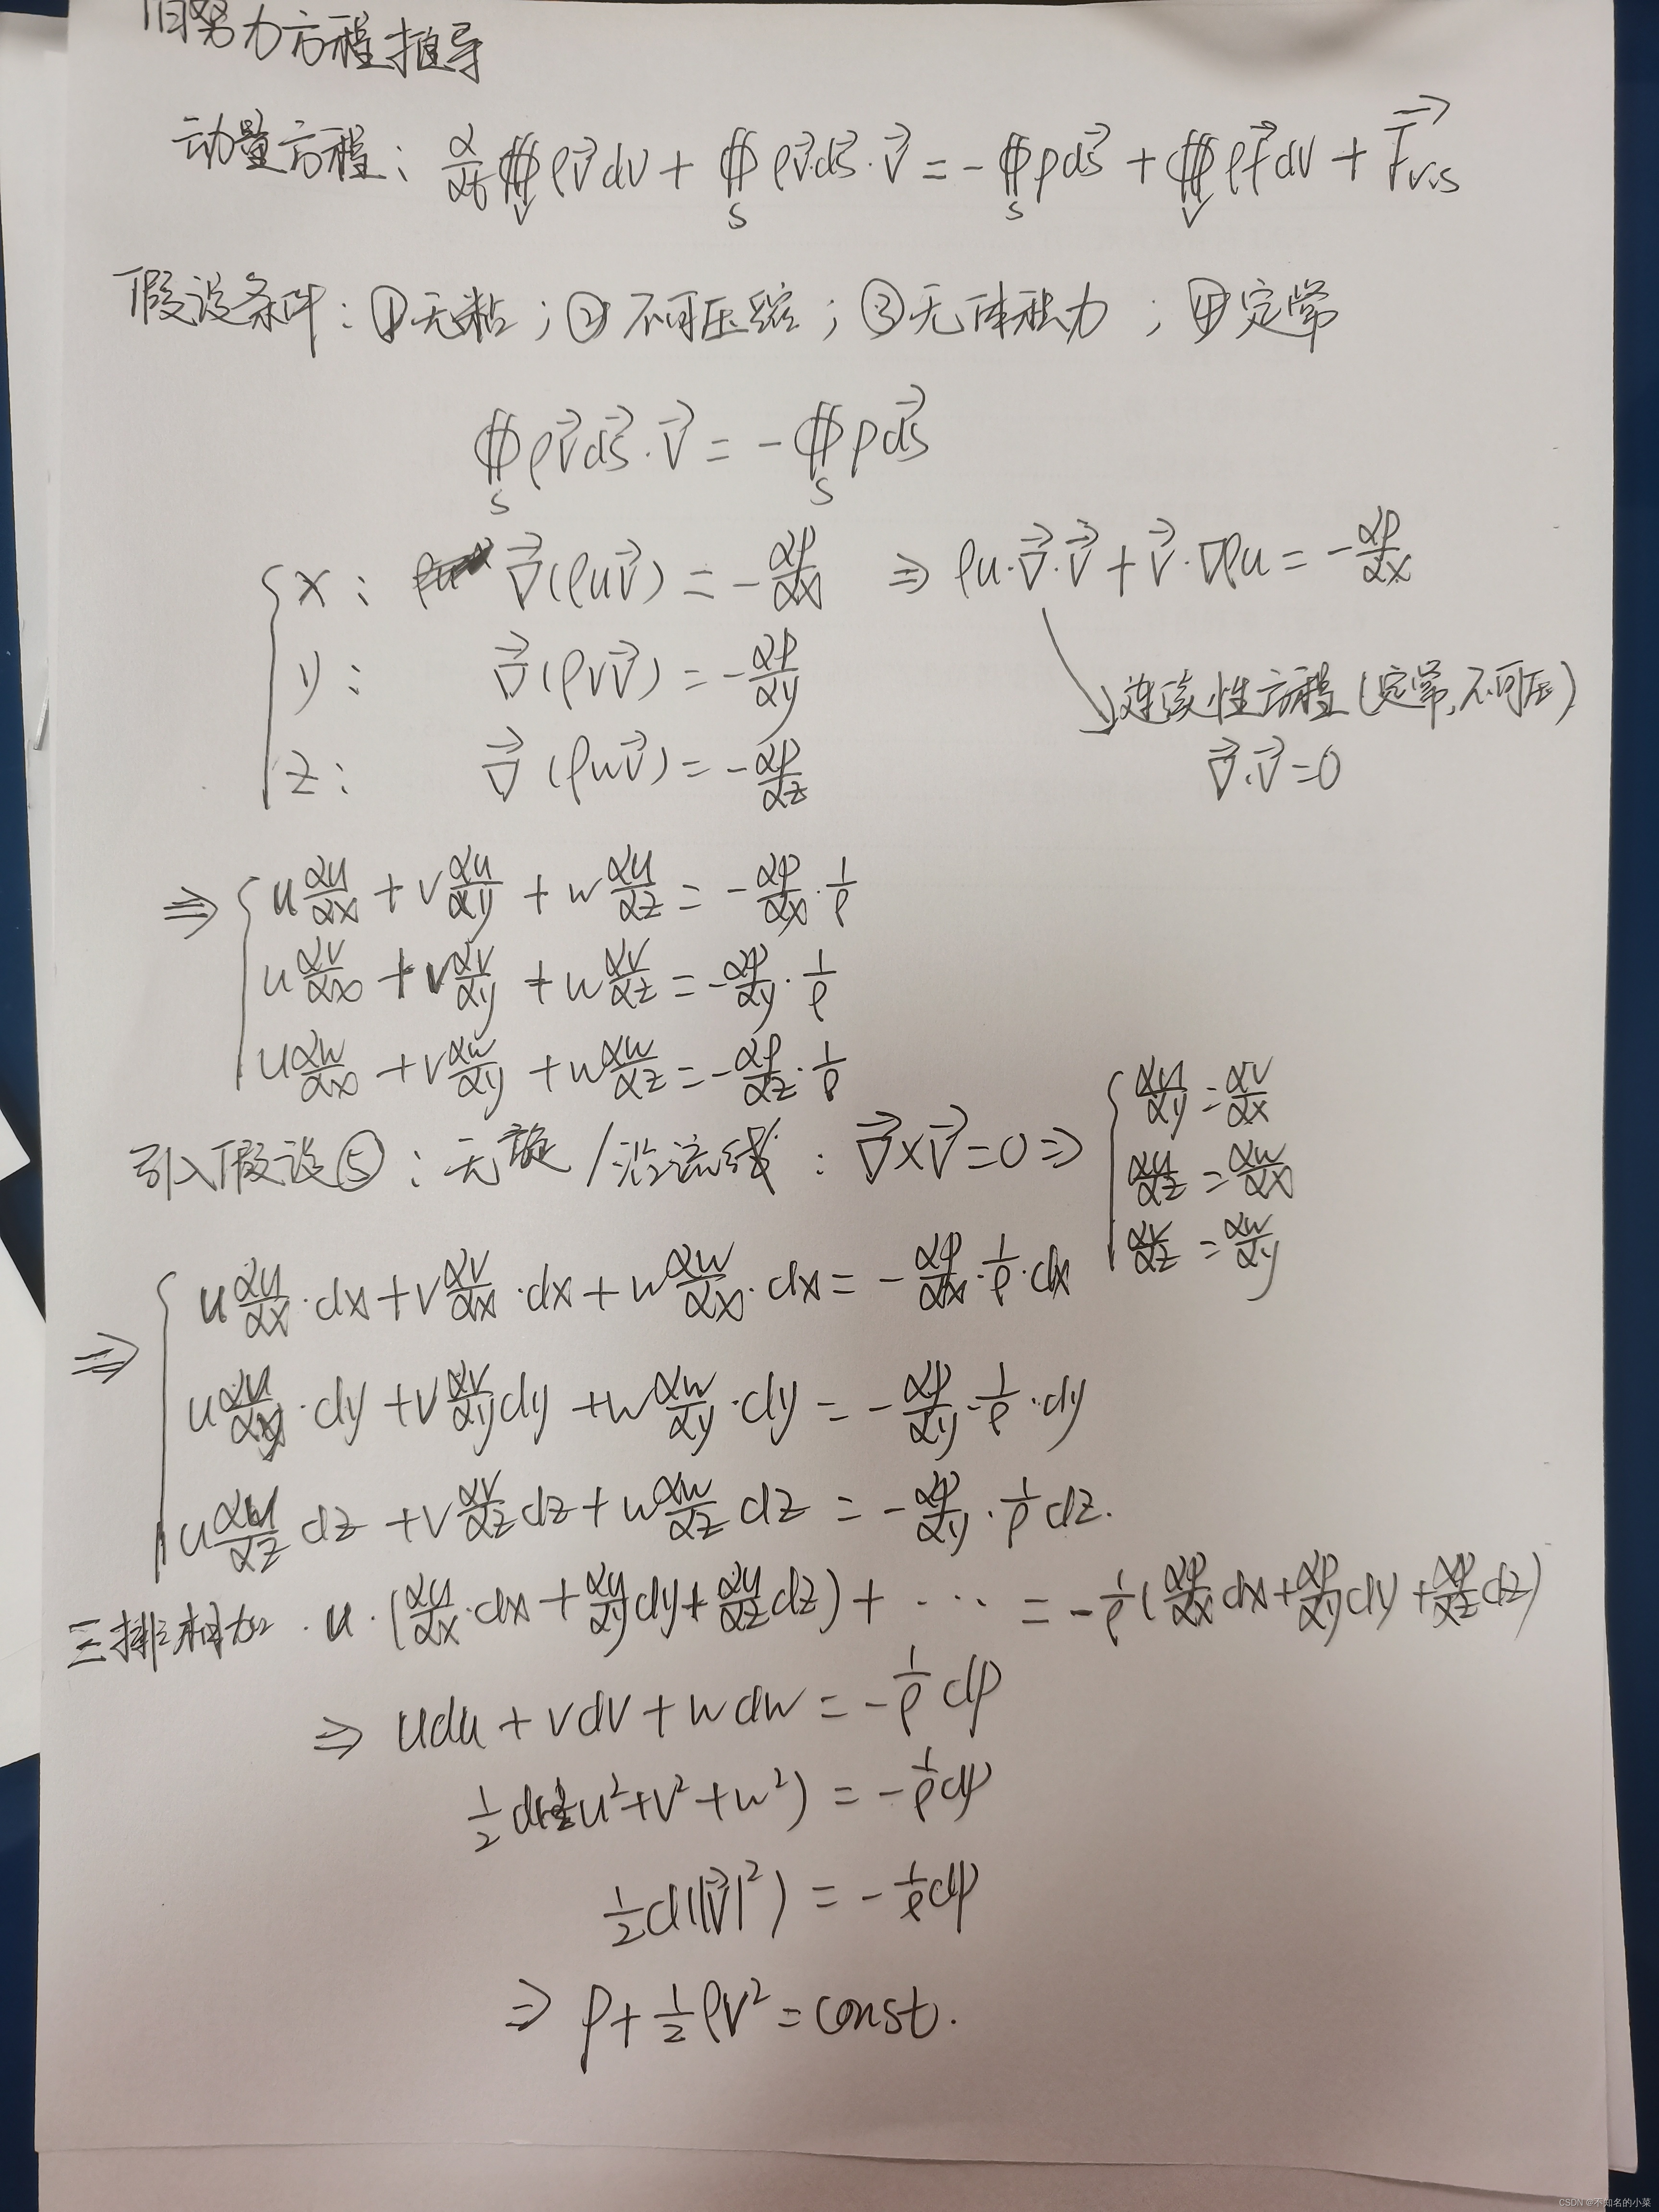 伯努力方程推导
动量方程: ∂/∂t ∰_V ρV⃗dV + ∯_S ρV⃗·dS⃗·V⃗ = -∯_S pdS⃗ + ∰_V ρf⃗dV + F⃗vis
假设条件: ①无粘; ②不可压缩; ③无体积力; ④定常
∯_S ρV⃗dS⃗·V⃗ = -∯_S pdS⃗
x: ∇⃗(ρuV⃗) = -∂p/∂x ⇒ ρu·∇⃗·V⃗ + V⃗·∇ρu = -∂p/∂x
y: ∇⃗(ρvV⃗) = -∂p/∂y
连续性方程(定常,不可压)
z: ∇⃗(ρwV⃗) = -∂p/∂z
∇⃗·V⃗=0
⇒ u∂u/∂x + v∂u/∂y + w∂u/∂z = -∂p/∂x·1/ρ
u∂v/∂x + v∂v/∂y + w∂v/∂z = -∂p/∂y·1/ρ
u∂w/∂x + v∂w/∂y + w∂w/∂z = -∂p/∂z·1/ρ
引入假设⑤: 无旋/沿流线: ∇⃗×V⃗=0 ⇒
∂u/∂y = ∂v/∂x
∂u/∂z = ∂w/∂x
∂v/∂z = ∂w/∂y
⇒ u∂u/∂x·dx + v∂v/∂x·dx + w∂w/∂x·dx = -∂p/∂x·1/ρ·dx
u∂u/∂y·dy + v∂v/∂y dy + w∂w/∂y·dy = -∂p/∂y·1/ρ·dy
u∂u/∂z dz + v∂v/∂z dz + w∂w/∂z dz = -∂p/∂y·1/ρ dz.
三排相加. u·(∂u/∂x·dx + ∂u/∂y dy + ∂u/∂z dz) + ··· = -1/ρ(∂p/∂x dx + ∂p/∂y dy + ∂p/∂z dz)
⇒ udu + vdv + wdw = -1/ρ dp
1/2 d(u²+v²+w²) = -1/ρ dp
1/2 d(|V⃗|²) = -1/ρ dp
⇒ p + 1/2 ρV² = const.
CSDN @不知名的小菜